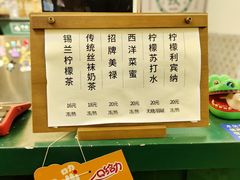 锡兰柠檬茶
16元
冻/热
传统丝袜奶茶
18元
冻/热
招牌美禄
20元
冻/热
西洋菜蜜
20元
冻/热
柠檬苏打水
20元
柠檬利宾纳
20元
冻/热